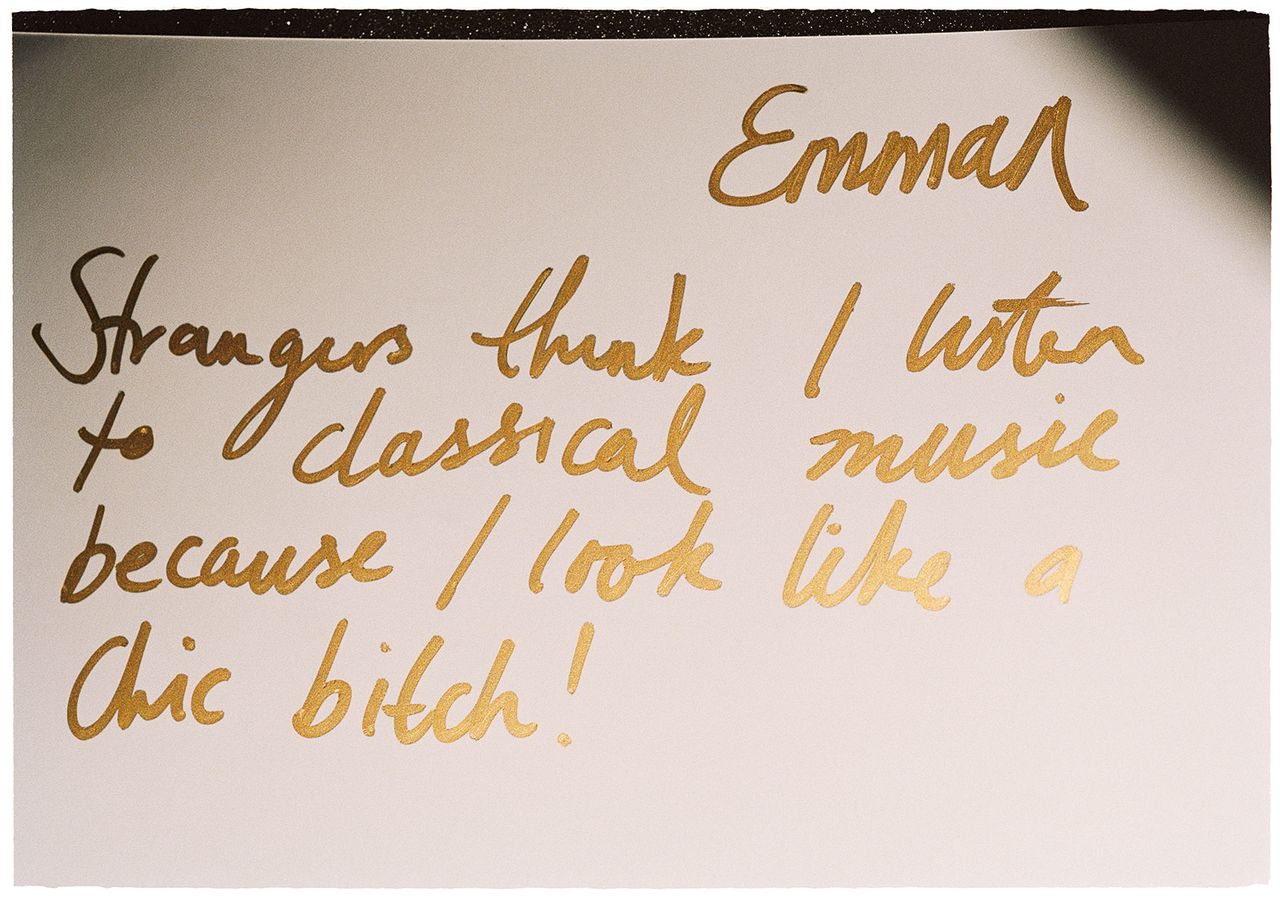 Emman
Strangers think I listen
to classical music
because I look like a
Chic bitch!